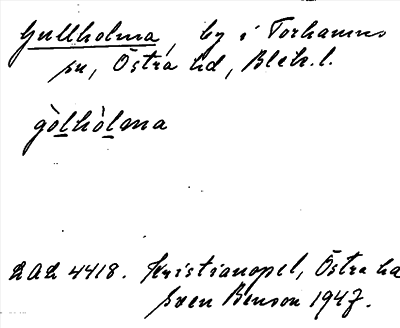 Gullholma, by i Torhamns
sn, Östra hd, Blek. l.
gòlhòlma
LAL 4418. Kristianopel, Östra hd
Sven Benson 1947.